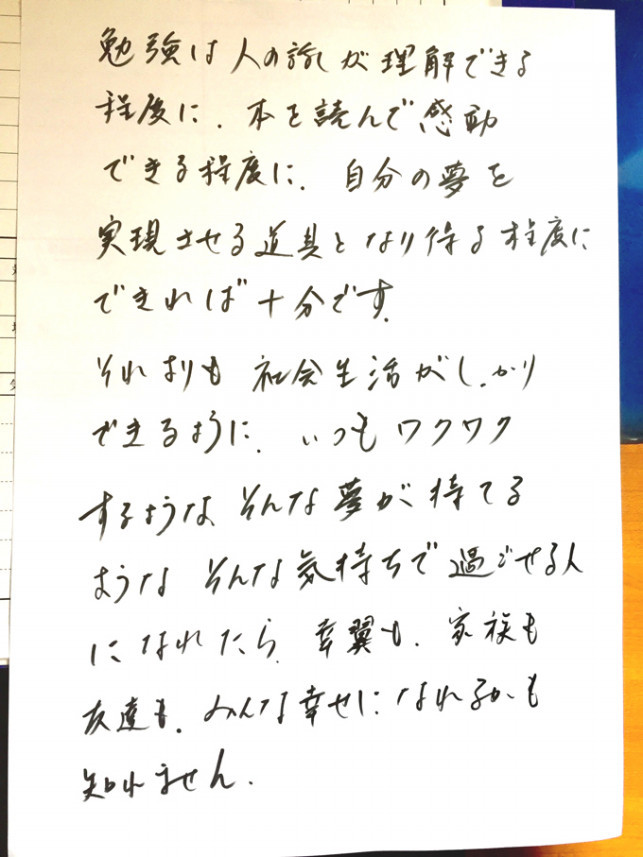 勉強は人の話しが理解できる
程度に、本を読んで感動
できる程度に、自分の夢を
実現させる道具となり得る程度に
できれば十分です。
それよりも社会生活がしっかり
できるように、いつもワクワク
するような そんな夢が持てる
ような そんな気持ちで過ごせる人
になれたら、幸翼も、家族も
友達も、みんな幸せになれるかも
知れません。